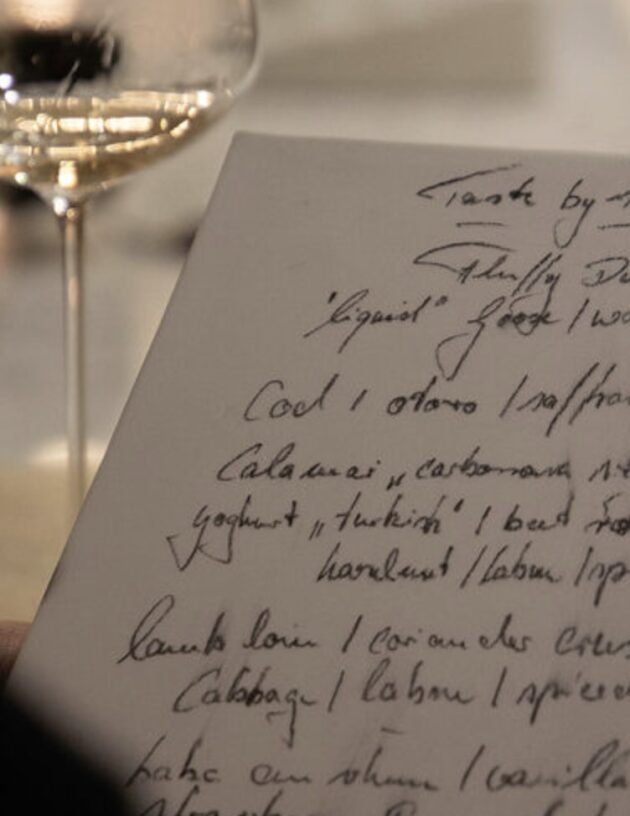 Taste by
Fluffy Du
"liquid" Goose / wa
Cod / otoro / saffra
Calamari „carbonara
yoghurt „turkish" / beet
hazelnut / labne / sp
lamb loin / coriander crus
Cabbage / labne / spiced
baba au rhum / vanilla